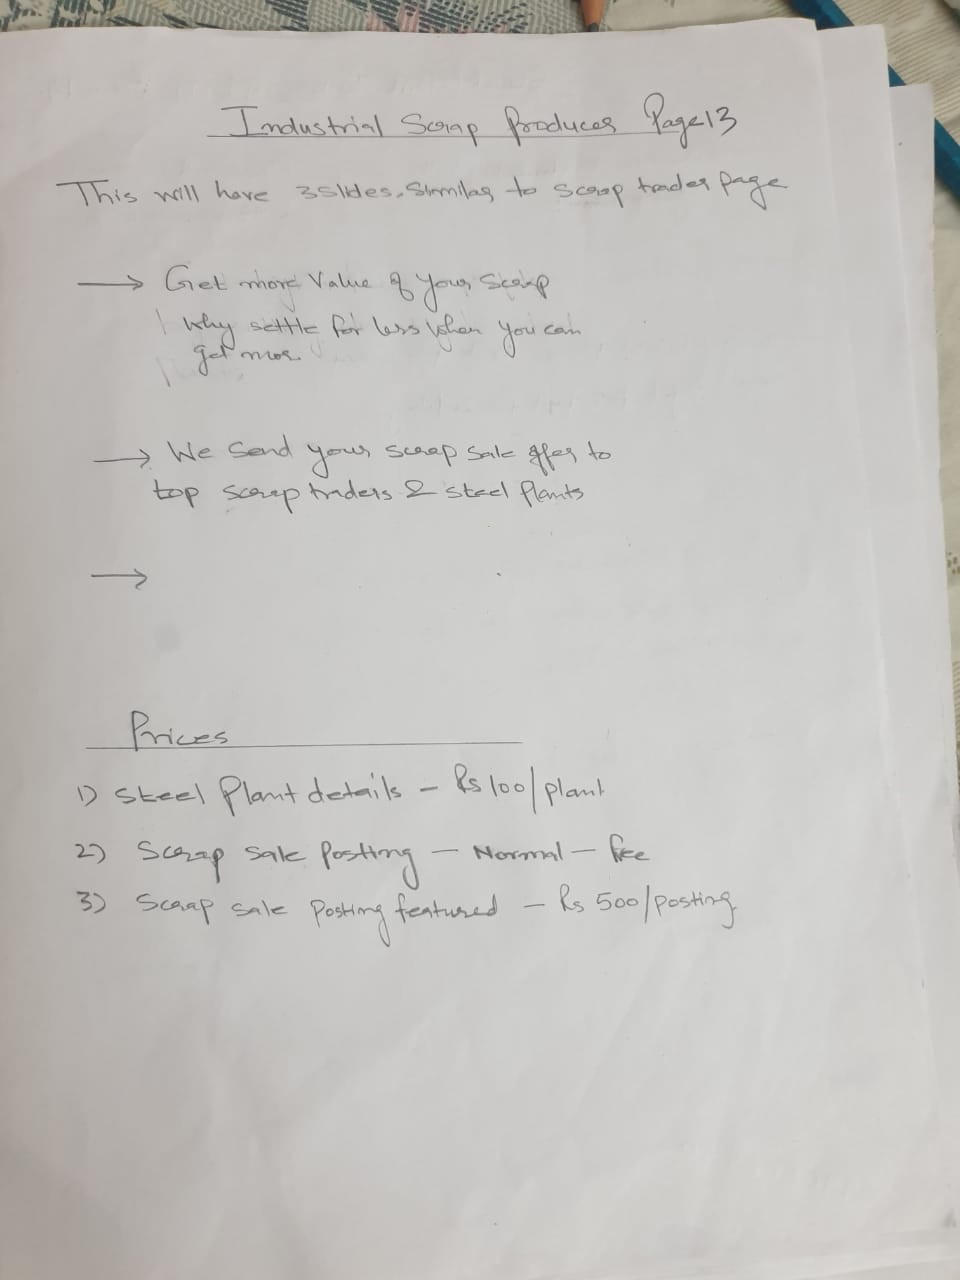 Industrial Scrap Producer Page 13
This will have 3 Slides. Similar to scrap trader page
→ Get more Value of your scrap
Why settle for less when you can
get more.
→ We Send your scrap sale offer to
top scrap traders & steel Plants
→
Prices
1) Steel Plant details - Rs 100/plant
2) Scrap sale Posting - Normal - free
3) Scrap sale Posting featured - Rs 500/posting